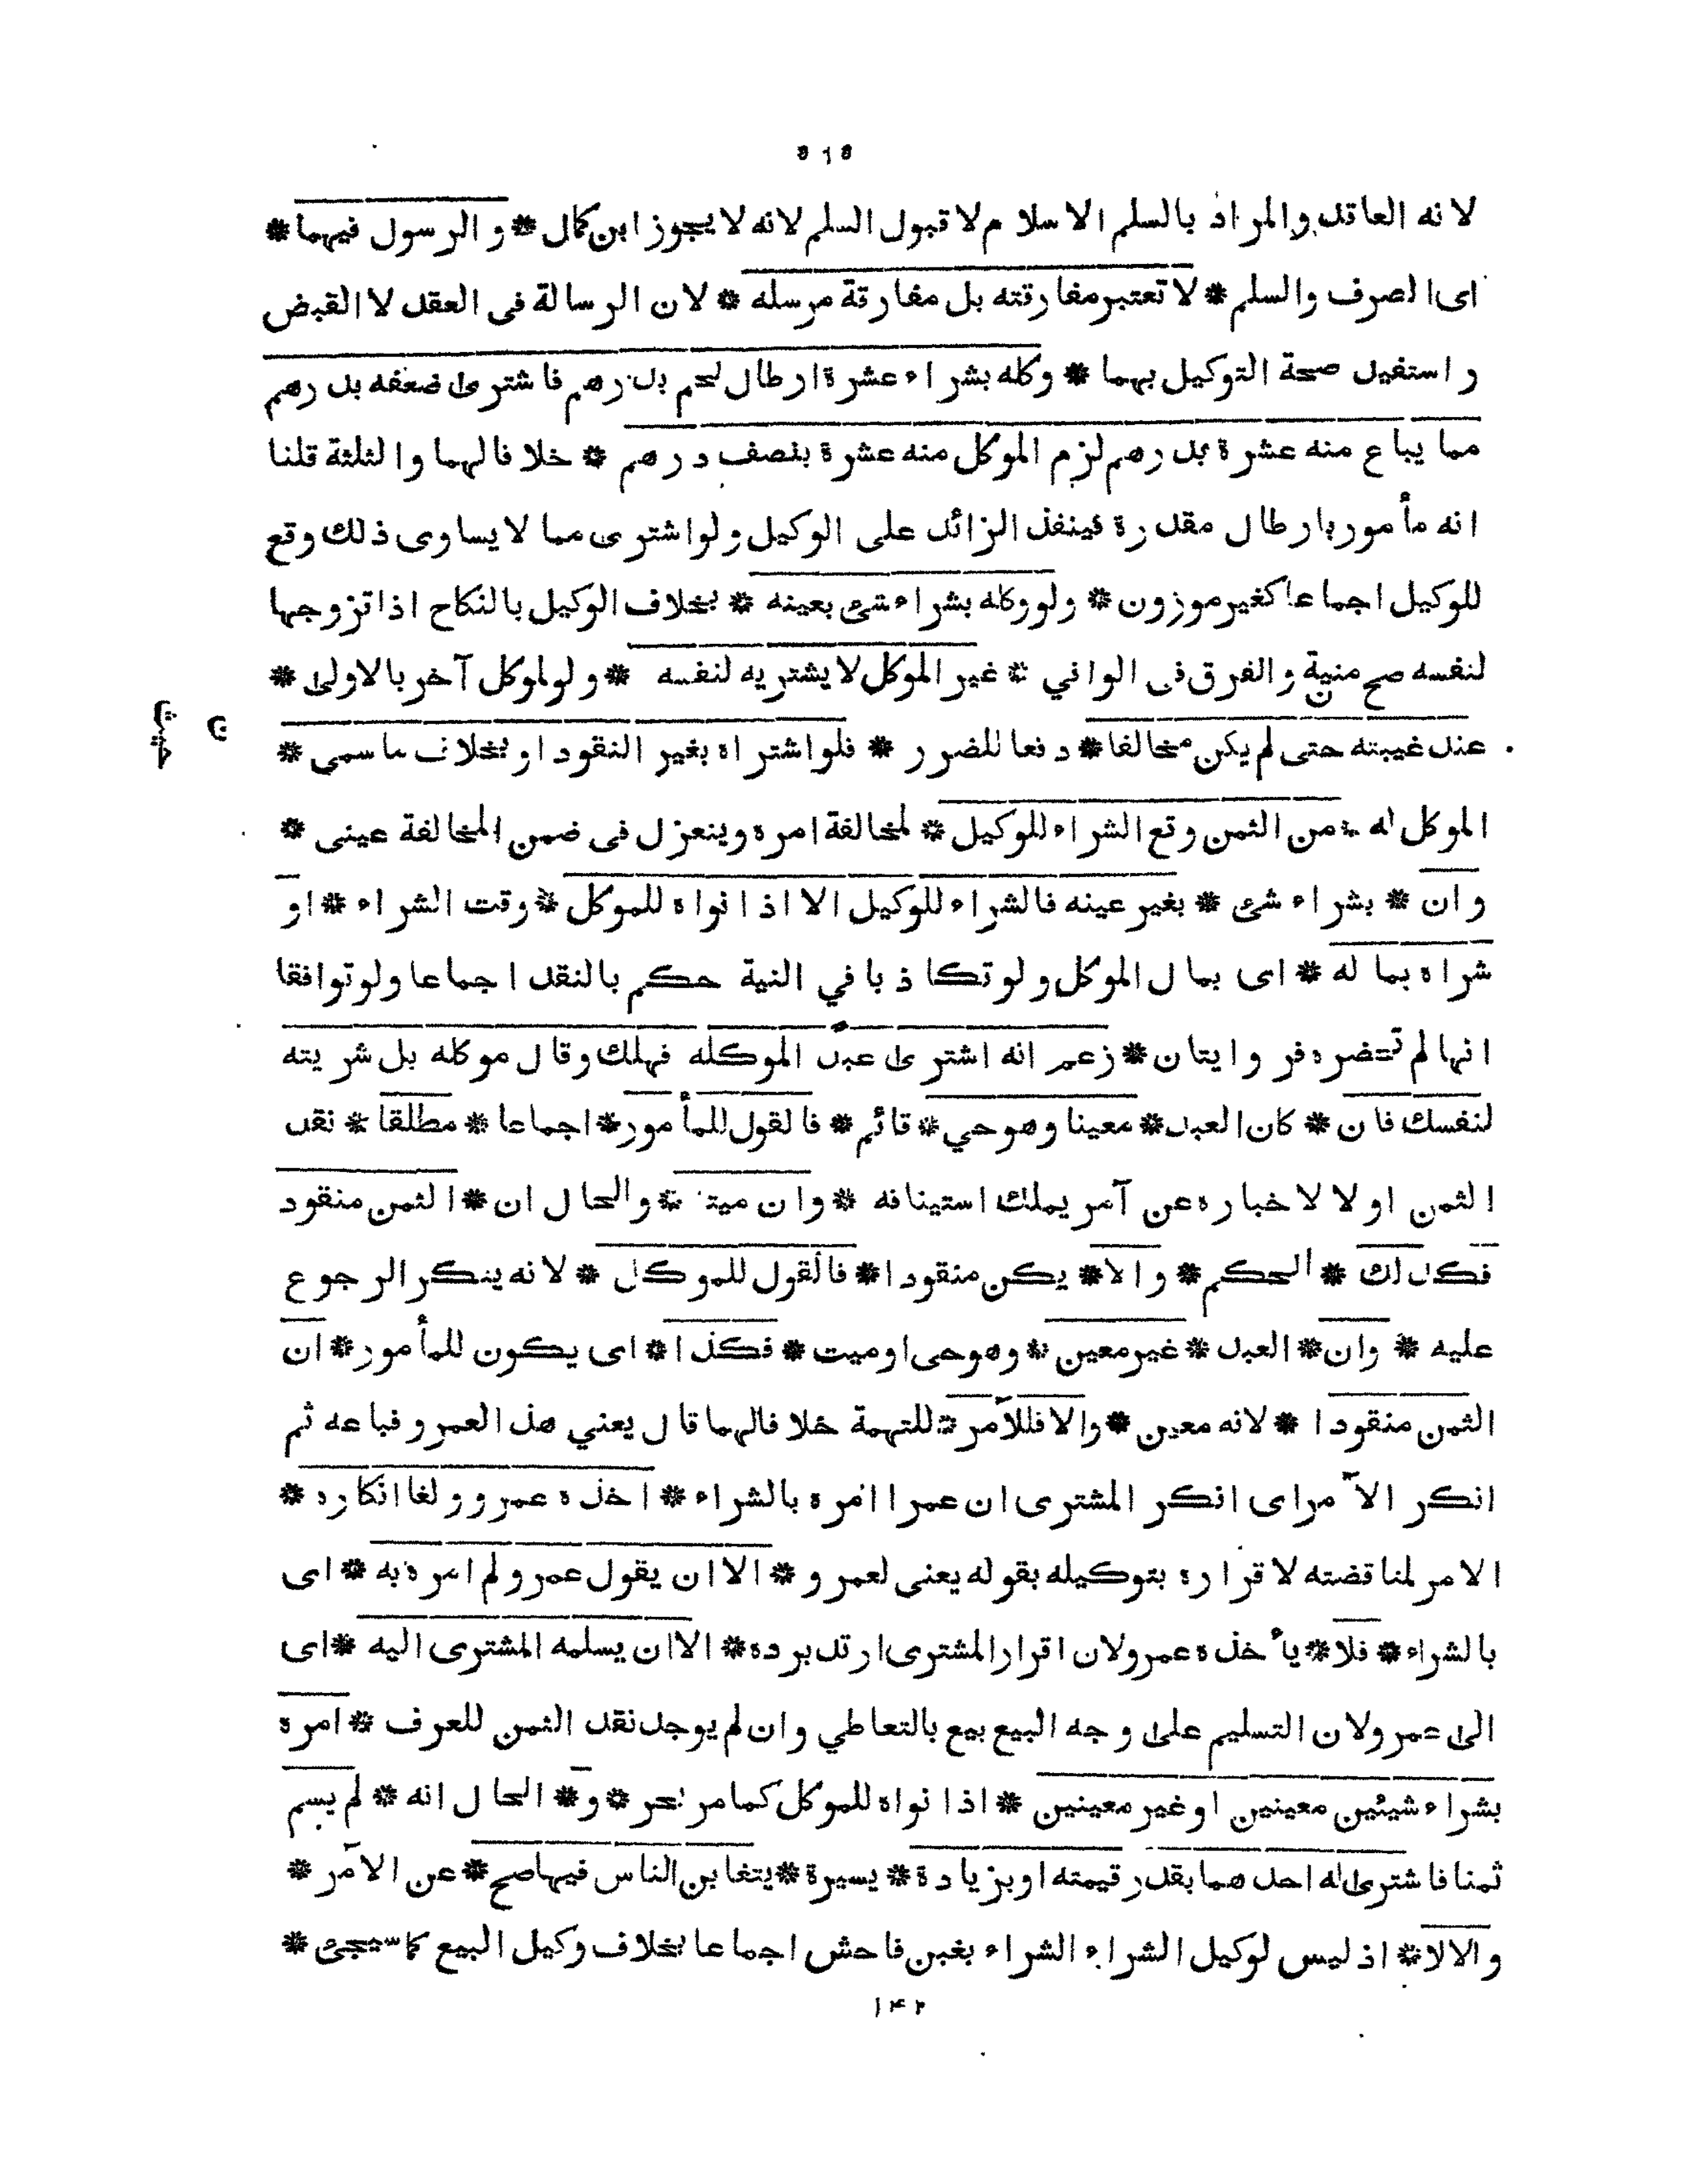 ٥١٥
لانه العاقد والمراد بالسلم الاسلام لا قبول السلم لانه لا يجوز ابن كمال * والرسول فيهما *
اى الصرف والسلم * لا تعتبر مفارقته بل مفارقة مرسله * لان الرسالة فى العقد لا القبض
واستفيد صحة التوكيل بهما * وكله بشراء عشرة ارطال لحم بدرهم فاشترى ضعفه بدرهم
مما يباع منه عشرة بدرهم لزم الموكل منه عشرة بنصف درهم * خلافا لهما والثلثة قلنا
انه مأمور بارطال مقدرة فينفذ الزائد على الوكيل ولو اشترى مما لا يساوى ذلك وقع
للوكيل اجماعا كغير موزون * ولو وكله بشراء شئ بعينه * بخلاف الوكيل بالنكاح اذا تزوجها
لنفسه صح منية والفرق فى الوانى * غير الموكل لا يشتريه لنفسه * ولو لموكل آخر بالاولى *
عند غيبته حتى لم يكن مخالفا * دفعا للضرر * فلو اشتراه بغير النقود او بخلاف ما سمى *
ن
حيث
الموكل له * من الثمن وقع الشراء للوكيل * لمخالفة امره وينعزل فى ضمن المخالفة عينى *
وان * بشراء شئ * بغير عينه فالشراء للوكيل الا اذا نواه للموكل * وقت الشراء * او
شراه بماله * اى بمال الموكل ولو تكاذبا في النية حكم بالنقد اجماعا ولو توافقا
انها لم تحضره فروايتان * زعم انه اشترى عبد الموكله فهلك وقال موكله بل شريته
لنفسك فان * كان العبد * معينا وهو حي * قائم * فالقول للمأمور * اجماعا * مطلقا * نقد
الثمن اولا لاخباره عن آمر يملك استينافه * وان ميتا * والحال ان * الثمن منقود
فكذلك * الحكم * والا * يكن منقودا * فالقول للموكل * لانه ينكر الرجوع
عليه * وان * العبد * غير معين * وهو حى او ميت * فكذا * اى يكون للمأمور * ان
الثمن منقودا * لانه معين * والا فللآمر * للتهمة خلافا لهما قال يعني هذا لعمرو فباعه ثم
انكر الآمر اى انكر المشترى ان عمرا امره بالشراء * اخذه عمرو ولغا انكاره *
الامر لمناقضته لاقراره بتوكيله بقوله يعنى لعمرو * الا ان يقول عمرو لم امره به * اى
بالشراء * فلا * يأخذه عمرو لان اقرار المشترى ارتد برده * الا ان يسلمه المشترى اليه * اى
الى عمرو لان التسليم على وجه البيع بيع بالتعاطي وان لم يوجد نقد الثمن للعرف * امره
بشراء شيئين معينين او غير معينين * اذا نواه للموكل كما مر بحر * و * الحال انه * لم يسم
ثمنا فاشترى له احدهما بقدر قيمته او بزيادة * يسيرة * يتغابن الناس فيها صح * عن الآمر *
والا لا * اذ ليس لوكيل الشراء الشراء بغبن فاحش اجماعا بخلاف وكيل البيع كما سيجئ *
١٤٢